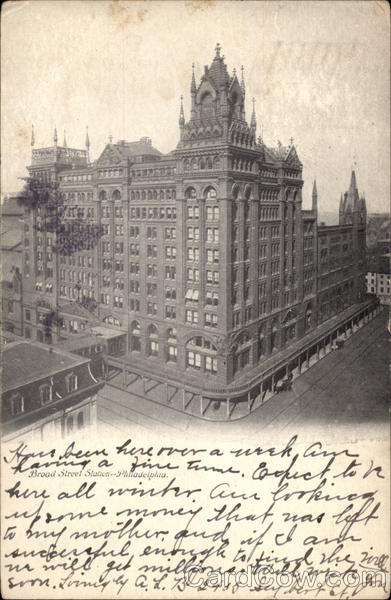 Have been here over a week. Am
having a fine time. Expect to be
Broad Street Station--Philadelphia.
here all winter. Am looking
up some money that was left
to my mother, and if I am
successful enough to find the will
we will get millions. Tell me
soon. A. L. B.
CardCow.com